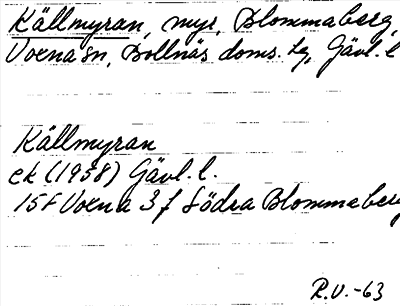 Källmyran, myr, Blommaberg,
Voxna sn, Bollnäs doms. tg, Gävl. l
Källmyran
ek (1958) Gävl. l.
15F Voxna 3 f Södra Blommaberg
R.V. -63